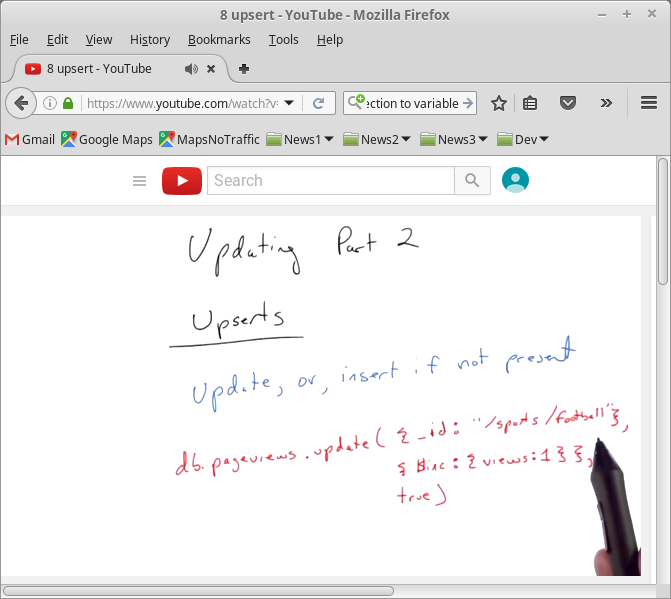 8 upsert - YouTube - Mozilla Firefox
File Edit View History Bookmarks Tools Help
8 upsert - YouTube
https://www.youtube.com/watch?v= ection to variable
Gmail Google Maps MapsNoTraffic News1 News2 News3 Dev
Search
Updating Part 2
Upserts
Update, or, insert if not present
db.pageviews.update( { _id: "/sports/football" },
{ $inc: { views: 1 } },
true)